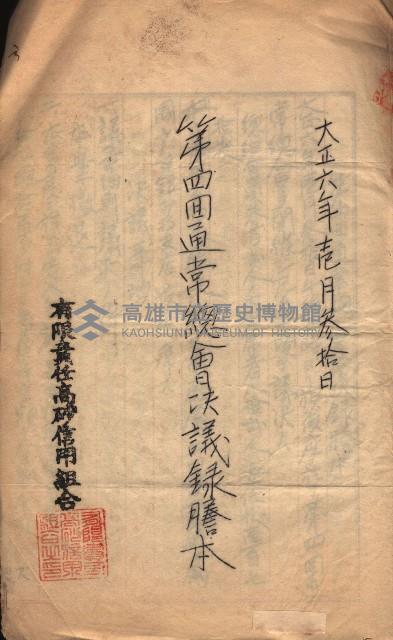 大正六年壱月参拾日
第四回通常總會決議録謄本
有限責任高砂信用組合
高雄市立歷史博物館
KAOHSIUNG MUSEUM OF HISTORY